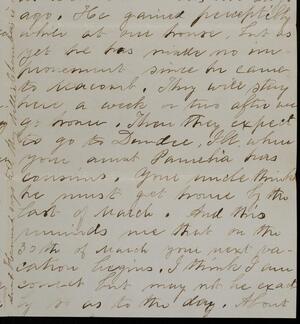 ago. He gained perceptibly
while at our house, but as
yet he has made no im-
provement since he came
to Macomb. They will stay
here, a week or two after we
go home. Then they expect
to go to Dundee, Ill. where
your aunt Pamelia has
cousins. Your uncle thinks
he must get home by the
last of March. And this
reminds me that on the
30th of March your next va-
cation begins. I think I am
correct but may not be exact-
ly so as to the day. About